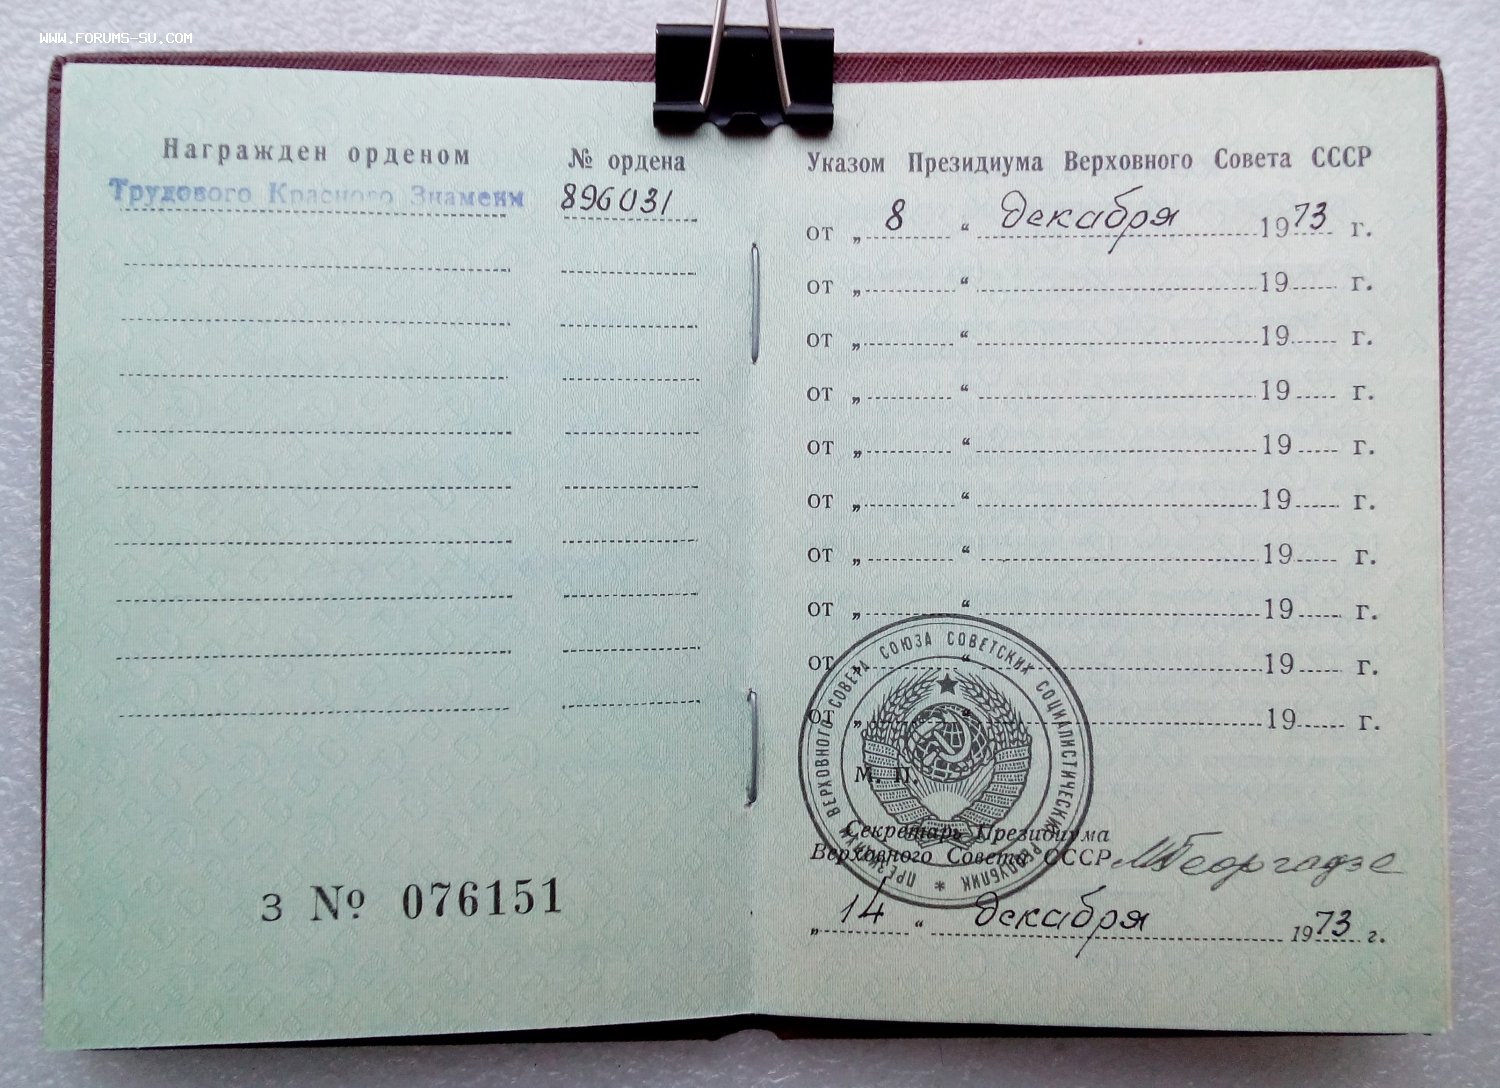 WWW.FORUMS-SU.COM
Награжден орденом
№ ордена
Трудового Красного Знамени
896031
З № 076151
Указом Президиума Верховного Совета СССР
от „ 8 “ декабря 1973 г.
от „ “ 19 г.
от „ “ 19 г.
от „ “ 19 г.
от „ “ 19 г.
от „ “ 19 г.
от „ “ 19 г.
от „ “ 19 г.
от „ “ 19 г.
от „ “ 19 г.
ПРЕЗИДИУМ ВЕРХОВНОГО СОВЕТА СОЮЗА СОВЕТСКИХ СОЦИАЛИСТИЧЕСКИХ РЕСПУБЛИК *
М. П.
Секретарь Президиума
Верховного Совета СССР МГеоргадзе
„ 14 “ декабря 1973 г.